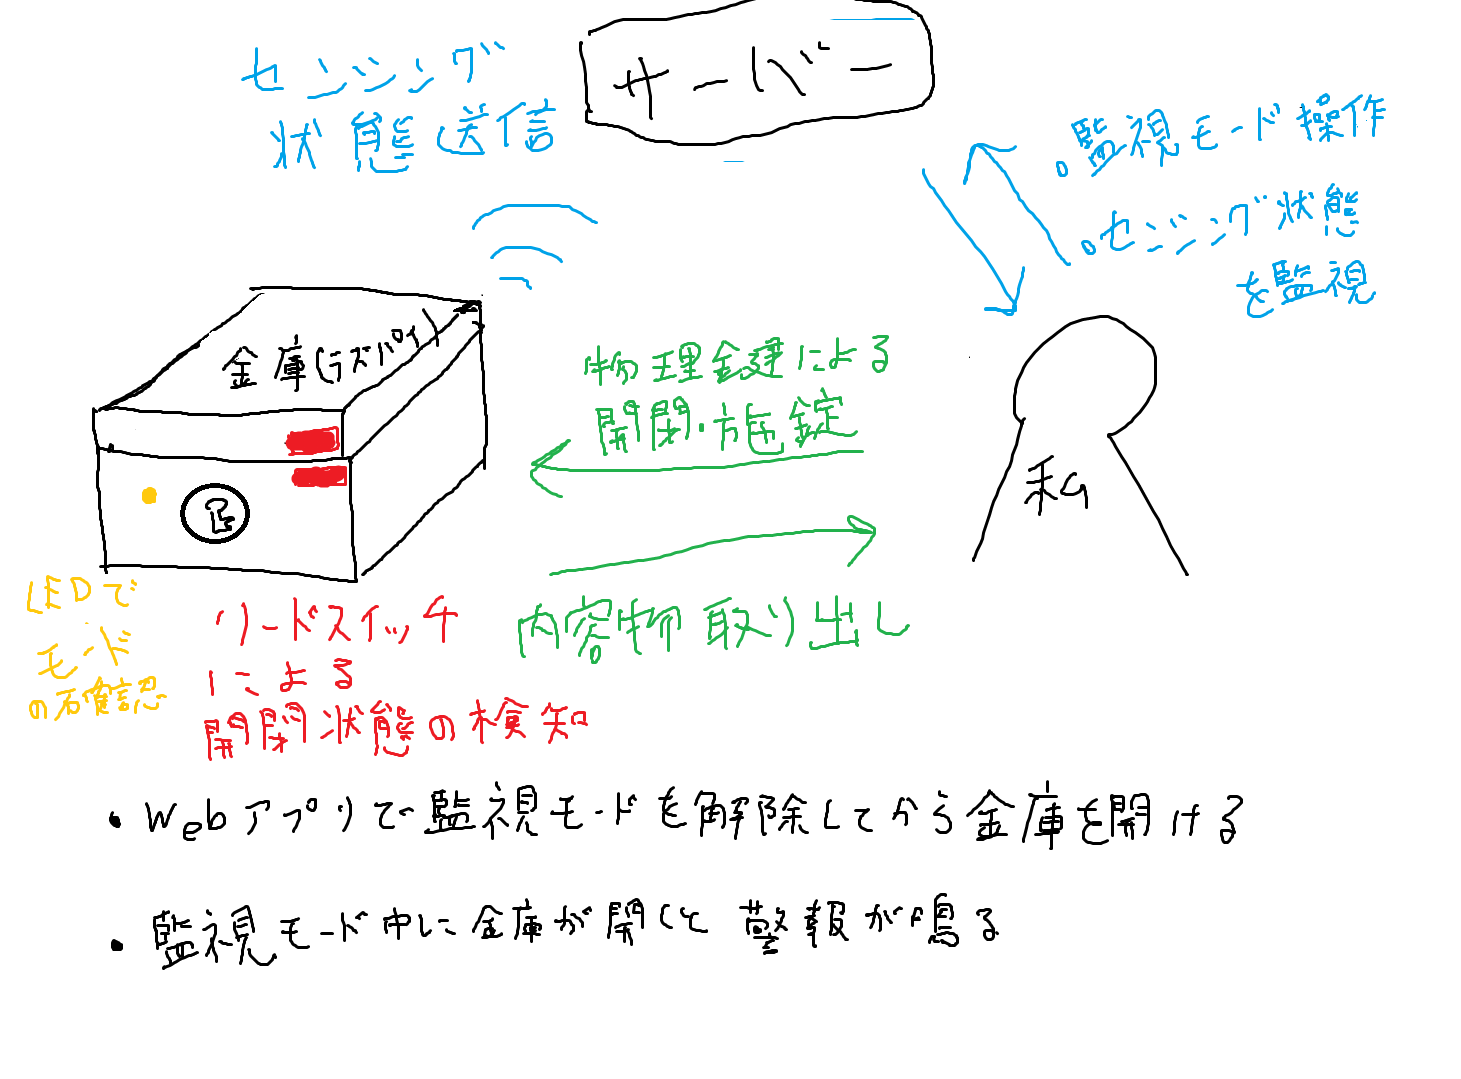 センシング
状態送信
サーバー
。監視モード操作
。センシング状態
を監視
金庫(ラズパイ)
物理鍵による
開閉・施錠
私
内容物取り出し
LEDで
モード
の確認
リードスイッチ
による
開閉状態の検知
・Webアプリで監視モードを解除してから金庫を開ける
・監視モード中に金庫が開くと警報が鳴る